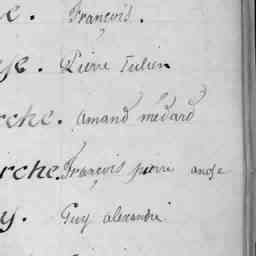 e. François.
se. Pierre Julien
rche. amand médard
arche. François pierre ange
y. Guy alexandre